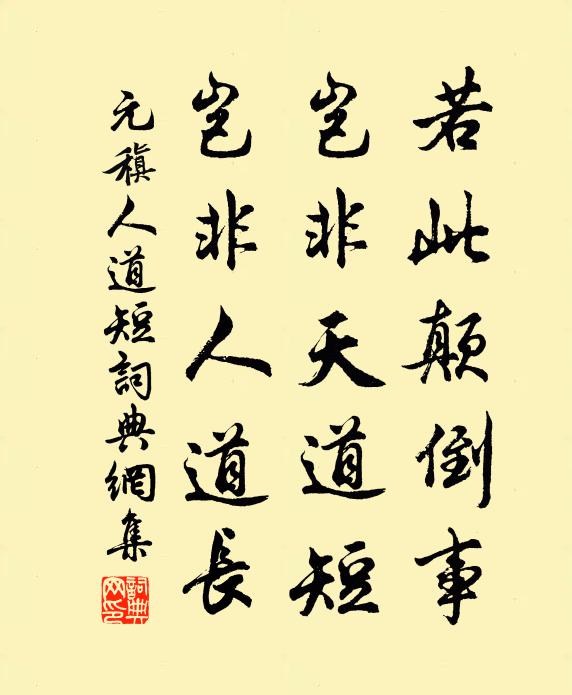 若此顛倒事
豈非天道短
豈非人道長
元稹人道短詞典網集
詞典網印